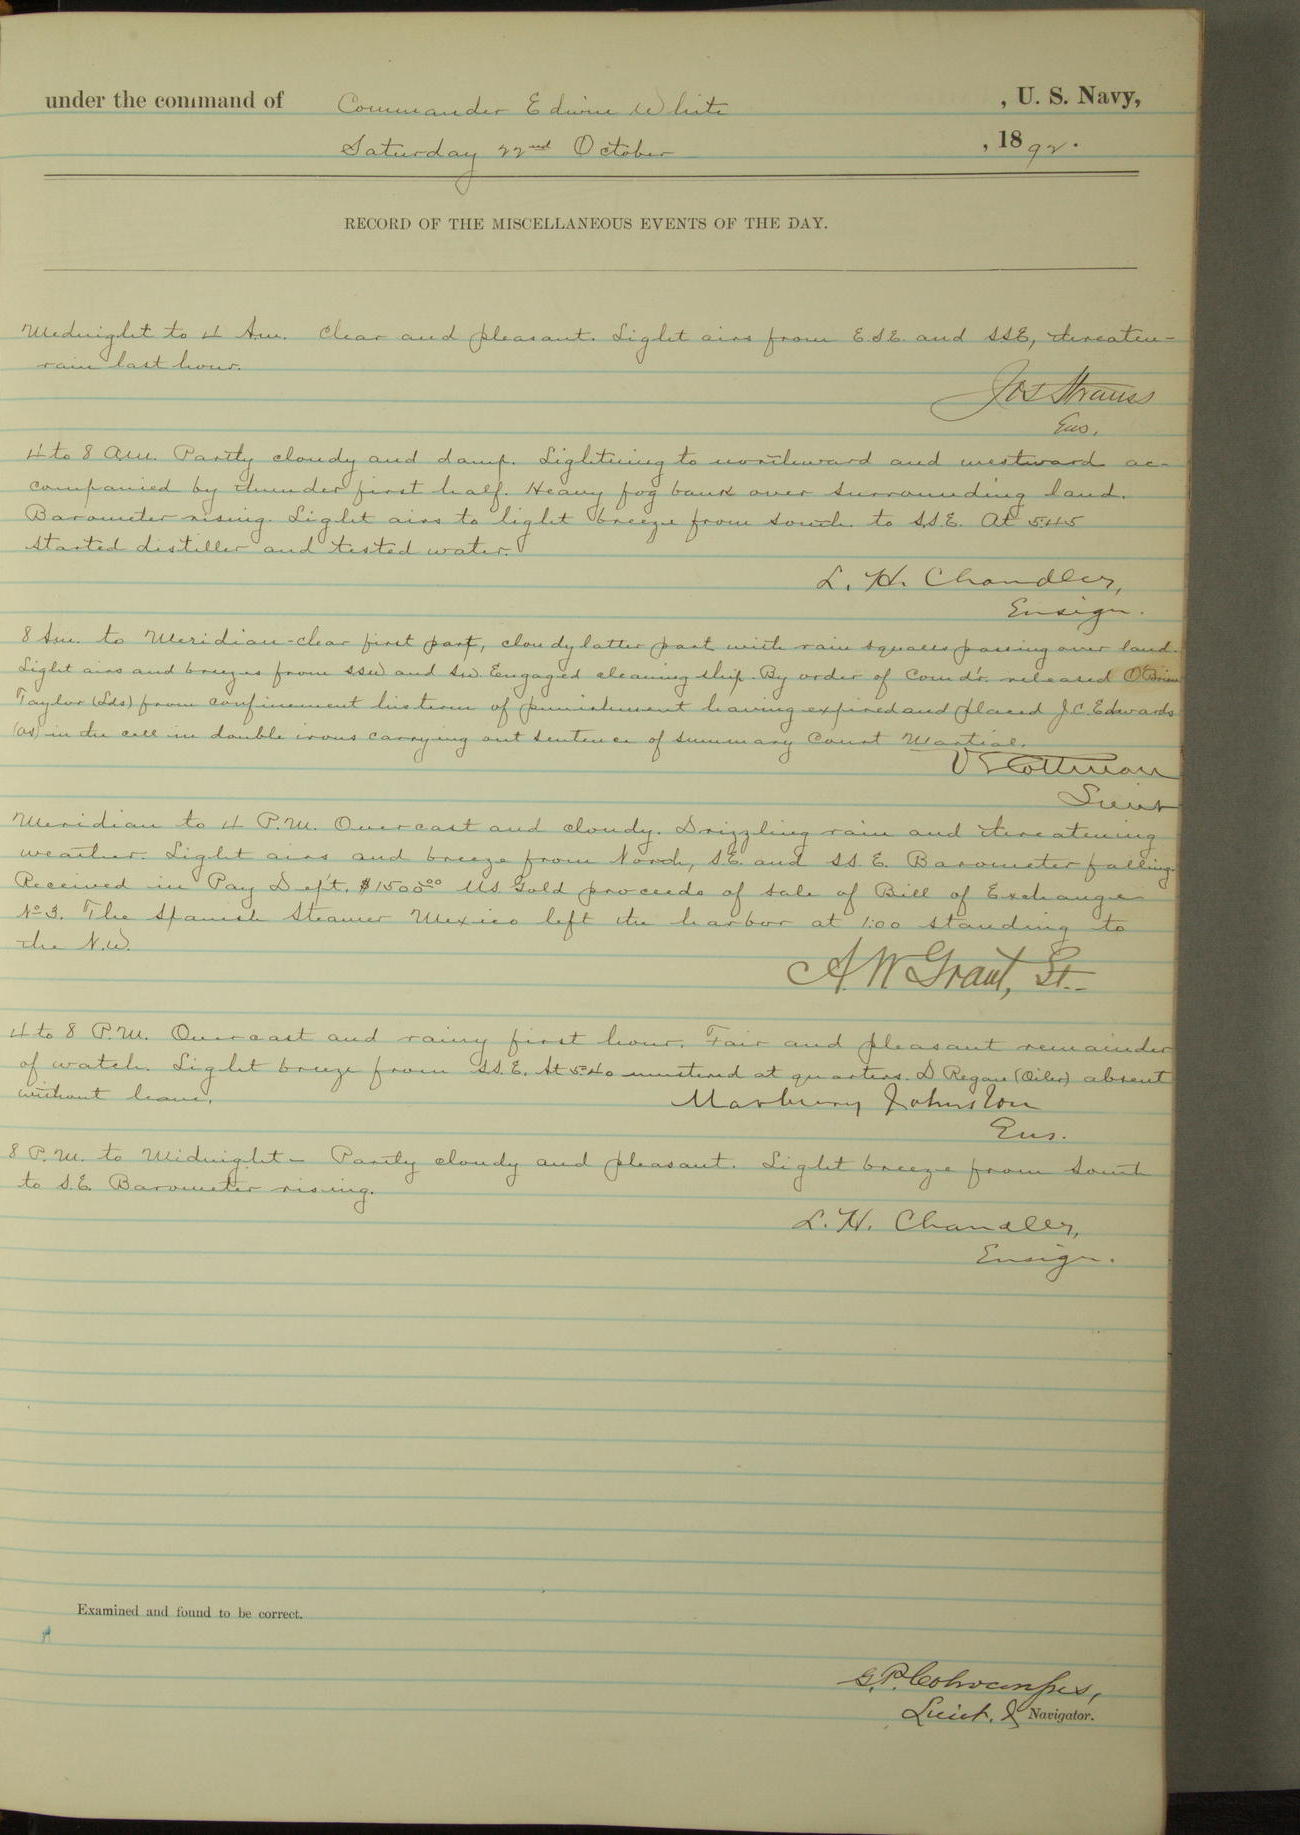 under the command of Commander Edwin White , U. S. Navy,
Saturday 22nd October , 1892.
RECORD OF THE MISCELLANEOUS EVENTS OF THE DAY.
Midnight to 4 Am. Clear and pleasant. Light airs from E.S.E. and SSE, threaten-
rain last hour.
Jos Strauss
Ens.
4 to 8 a.m. Partly cloudy and damp. Lightning to northward and westward ac-
companied by thunder first half. Heavy fog bank over surrounding land.
Barometer rising. Light airs to light breeze from south to S.S.E. At 5:45
started distiller and tested water.
L. H. Chandler,
Ensign.
8 Am. to Meridian - clear first part, cloudy latter part with rain squalls passing over land.
Light airs and breezes from SSW and SW. Engaged cleaning ship. By order of Comd'r. released O'Brien
Taylor (Lds) from confinement his term of punishment having expired and placed J.C. Edwards
in the cell in double irons carrying out sentence of Summary Court Martial.
Lieut
Meridian to 4 P.M. Overcast and cloudy. Drizzling rain and threatening
weather. Light airs and breeze from North, S.E. and S.S.E. Barometer falling.
Received in Pay Dep't. $1500.00 US Gold proceeds of sale of Bill of Exchange
No 3. The Spanish Steamer Mexico left the harbor at 1:00 standing to
the N.W.
A. W. Grant, Lt.
4 to 8 P.M. Overcast and rainy first hour. Fair and pleasant remainder
of watch. Light breeze from S.S.E. At 5:40 mustered at quarters. D Regan (Oiler) absent
without leave.
Marbury Johnston
Ens.
8 P.M. to Midnight - Partly cloudy and pleasant. Light breeze from South
to S.E. Barometer rising.
L. H. Chandler,
Ensign.
Examined and found to be correct.
G. P. Colvocoresses,
Lieut. & Navigator.